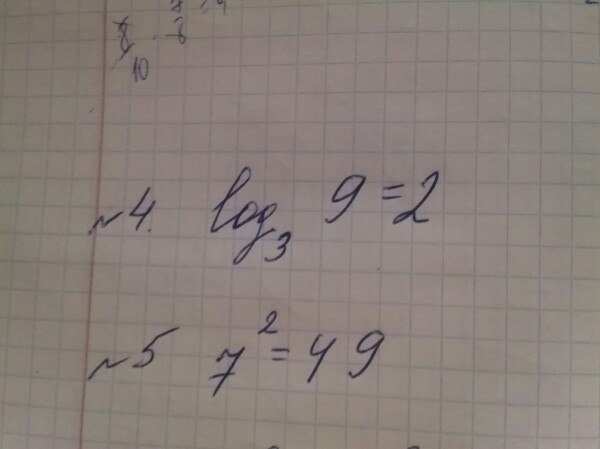 10
№4. log₃ 9 = 2
№5 7² = 49